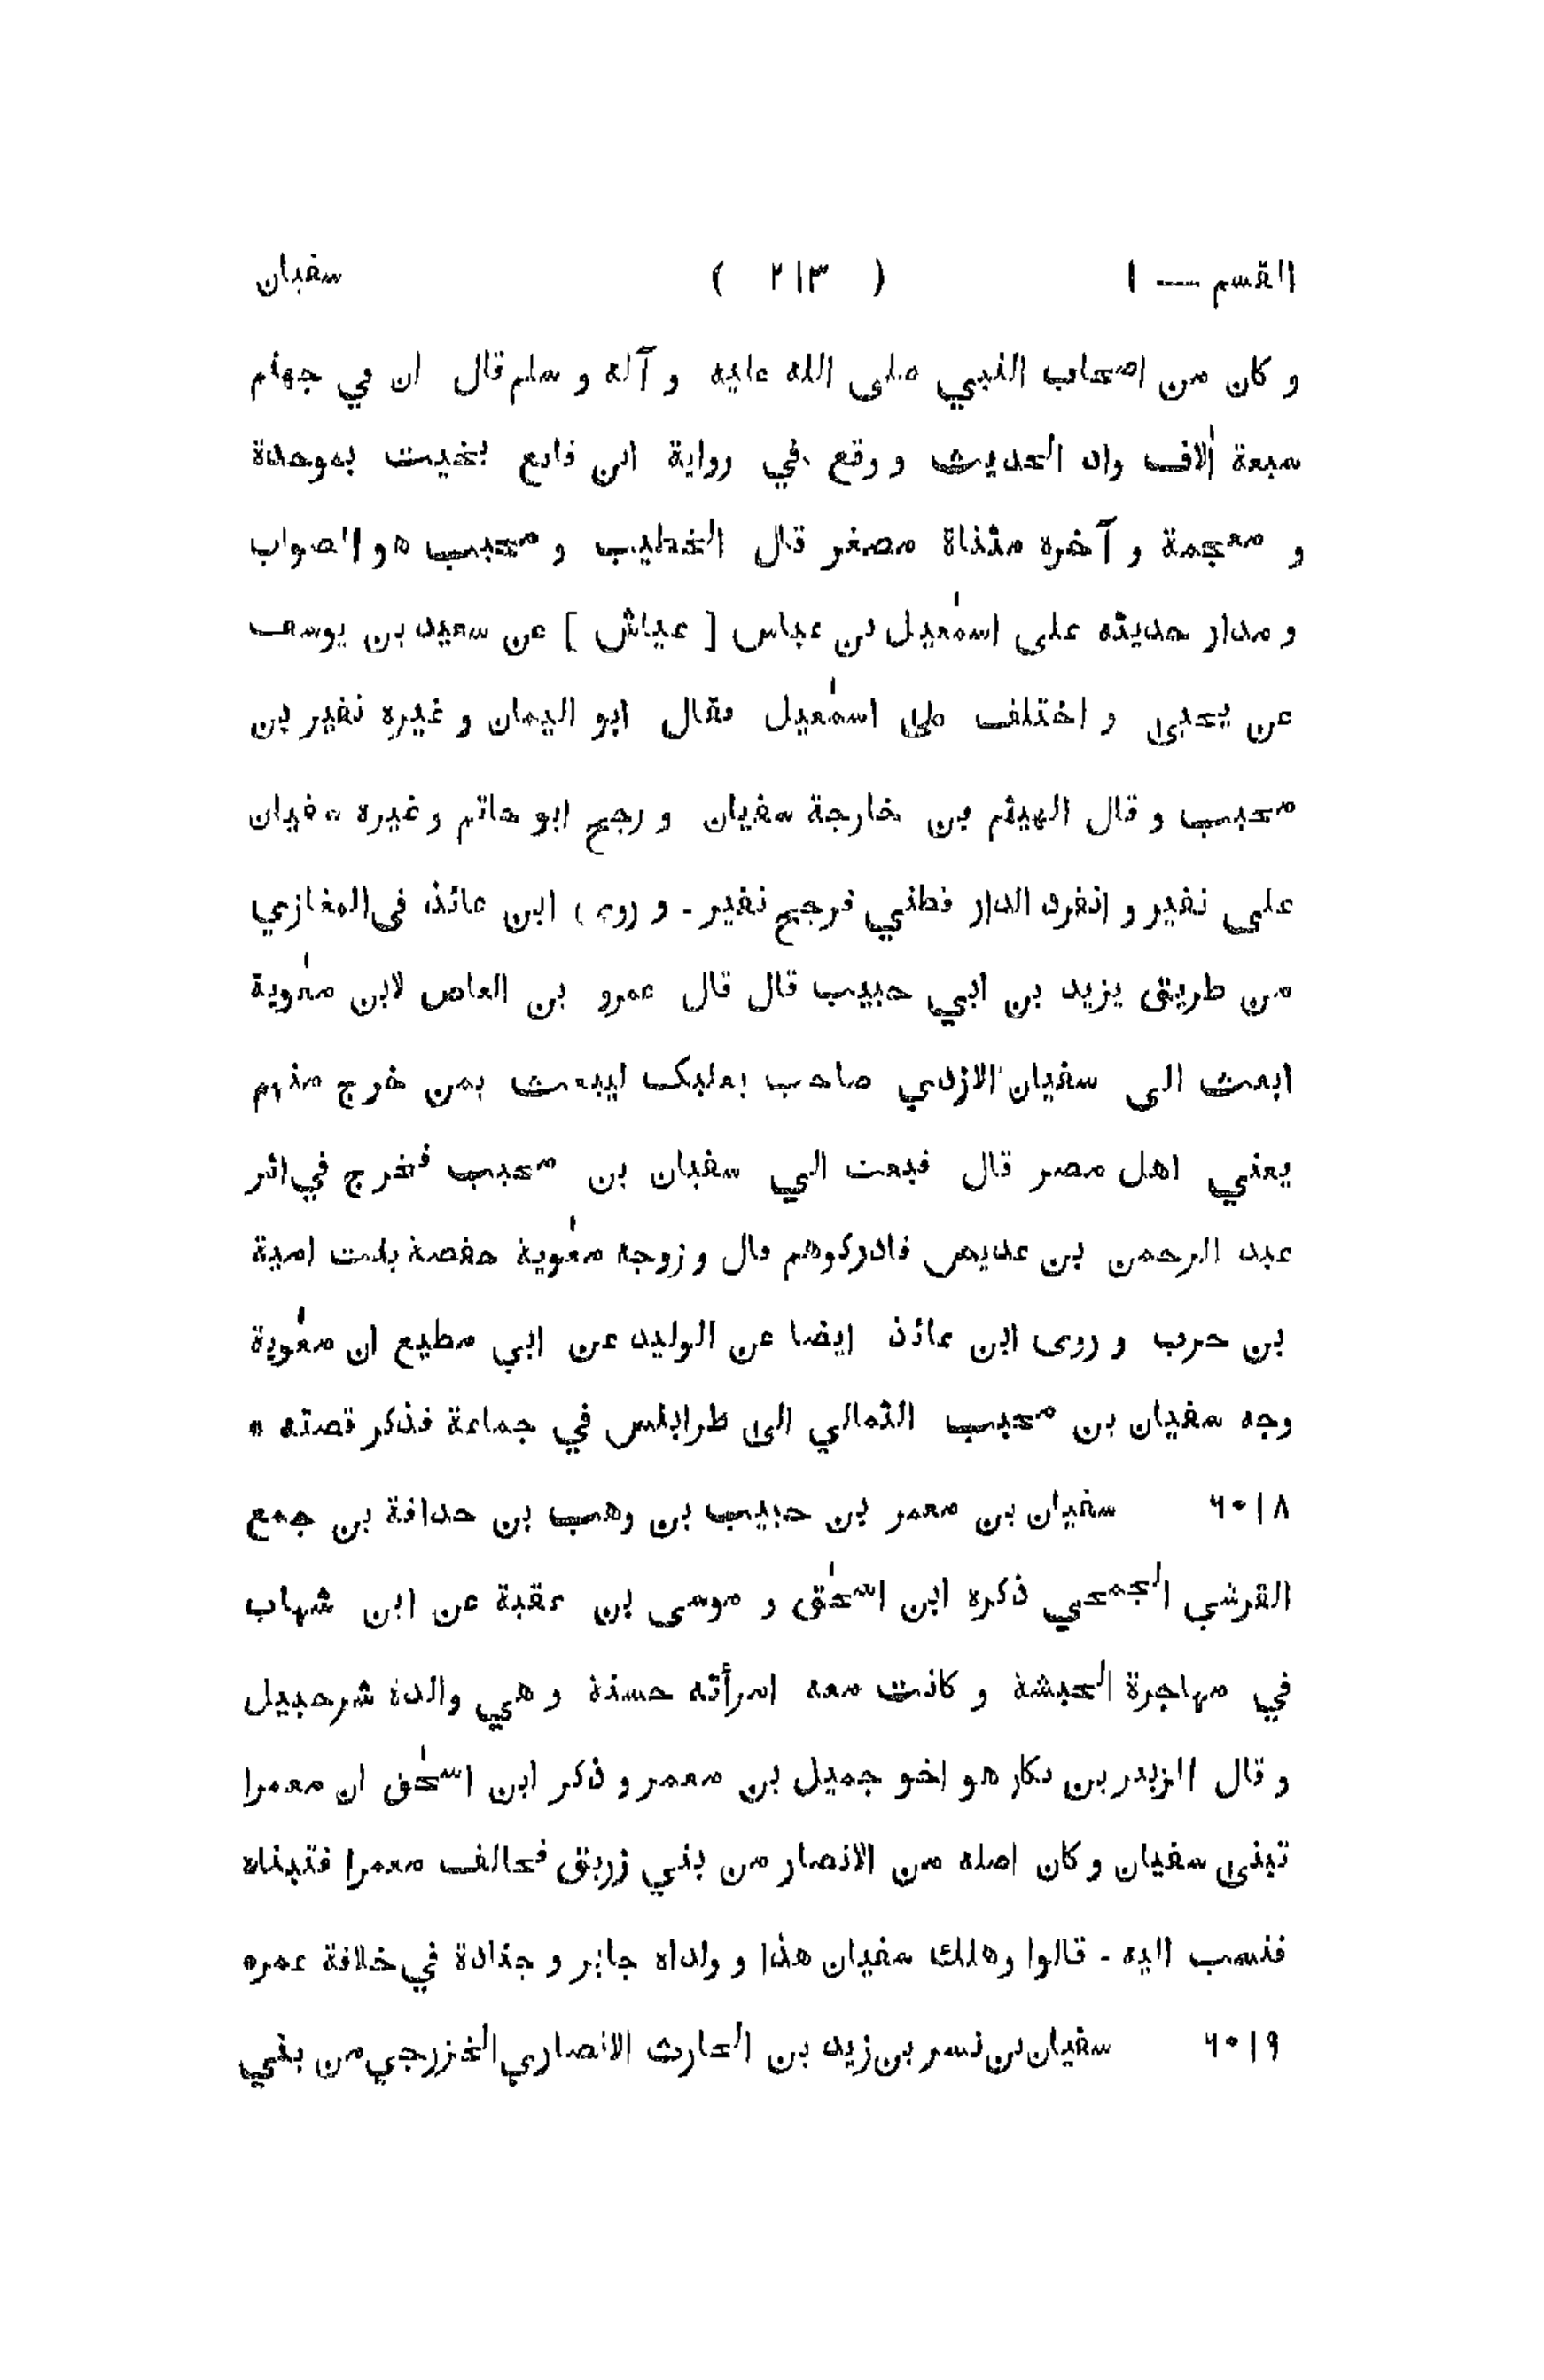 القسم — ١ ( ٢١٣ ) سفيان
و كان من اصحاب النبي صلى الله عليه و آله و سلم قال ان في جهنم
سبعة آلاف واد الحديث و وقع في رواية ابن قانع بخيت بموحدة
و معجمة و آخره مثناة مصغر قال الخطيب و مجيب هو الصواب
و مدار حديثه على اسمٰعيل بن عباس [ عياش ] عن سعيد بن يوسف
عن يحيى و اختلف على اسمٰعيل فقال ابو اليمان و غيره نفير بن
مجيب و قال الهيثم بن خارجة سفيان و رجح ابو حاتم و غيره سفيان
على نفير و انفرد الدار قطني فرجح نفير - و روى ابن عائذ فى المغازي
من طريق يزيد بن ابي حبيب قال قال عمرو بن العاص لابن معٰوية
ابعث الى سفيان الازدي صاحب بعلبك ليبعث بمن خرج منهم
يعني اهل مصر قال فبعث الي سفيان بن مجيب فخرج في اثر
عبد الرحمن بن عديس فادركوهم قال و زوجه معٰوية حفصة بنت امية
بن حرب و روى ابن عائذ ايضا عن الوليد عن ابي مطيع ان معٰوية
وجه سفيان بن مجيب الثمالي الى طرابلس في جماعة فذكر قصته *
٦٠١٨ سفيان بن معمر بن حبيب بن وهب بن حدافة بن جمع
القرشي الجمحي ذكره ابن اسحٰق و موسى بن عقبة عن ابن شهاب
في مهاجرة الحبشة و كانت معه امرأته حسنة و هي والدة شرحبيل
و قال الزبير بن بكار هو اخو جميل بن معمر و ذكر ابن اسحٰق ان معمرا
تبنى سفيان و كان اصله من الانصار من بني زريق فحالف معمرا فتبناه
فنسب اليه - قالوا وهلك سفيان هذا و ولداه جابر و جنادة في خلافة عمره
٦٠١٩ سفيان بن نسر بن زيد بن الحارث الانصاري الخزرجي من بني